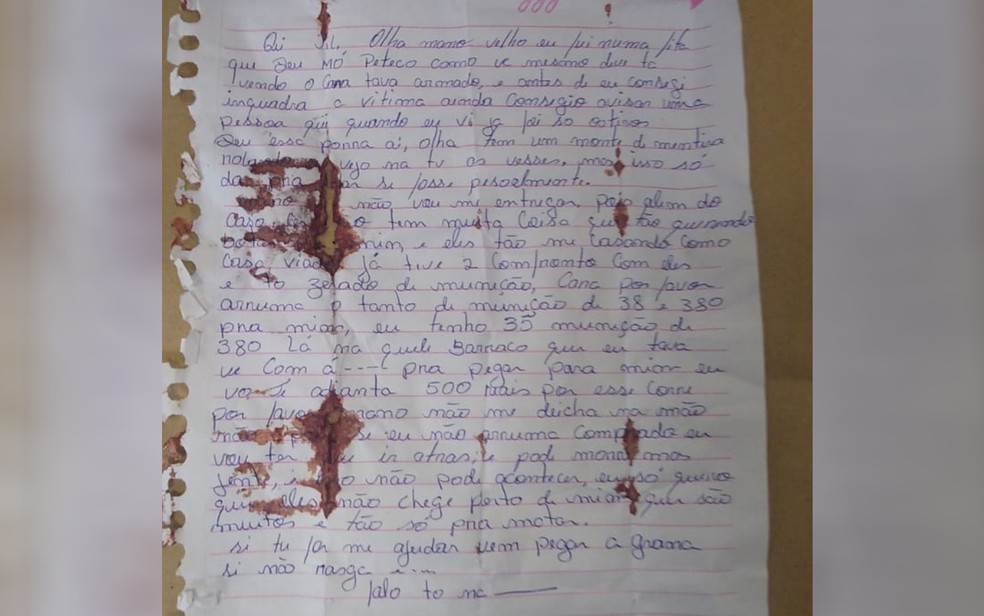 Oi Olha mano velho eu fui numa fita
que Deu MÓ Peteco como ve mesmo deve ta
vendo o Cara tava armado, e antes de eu consegi
inquadra a vitima ainda Consegio avisar uma
pessoa qui quando eu vi ja foi so os tiros
Deu essa porra ai, olha tem um monte de mentira
vejo na tv as veses, mas isso só
da pra se fosse pesoelmente.
não vou me entregar pois alem do
Caso tem muita Coisa que tão querendo
mim, e eles tão me Casando Como
Casa viado já tive 2 Comfronto Com eles
e to zerado de munição, Cara por favor
arruma o tanto de munição de 38 e 380
pra mim, eu tenho 35 munição de
380 Lá na quele Barraco que eu tava
ve Com á ---- pra pegar para mim eu
vo Te adianta 500 Reais por esse Corre
por favor mano não me deicha na mão
se eu não arruma Comprada eu
vou ter que ir atras, e pode morre mas
jente, i não pode acontecer, eu só queiro
que eles não chege perto de mim que são
muitos e tão só pra matar.
si tu for me ajudar vem pegar a grama
si não rasga e....
falo to na ———